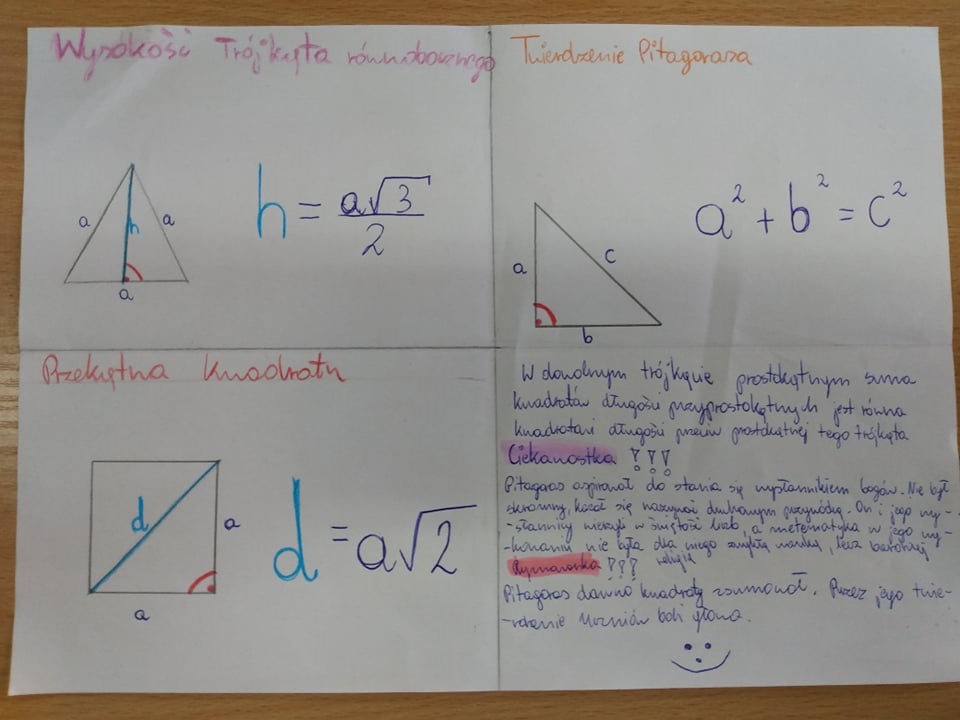 Wysokość Trójkąta równobocznego
a
h
a
a
h = a√3
2
Twierdzenie Pitagorasa
a
c
b
a² + b² = c²
Przekątna Kwadratu
d
a
a
d = a√2
W dowolnym trójkącie prostokątnym suma
kwadratów długości przyprostokątnych jest równa
kwadratowi długości przeciw prostokątnej tego trójkąta
Ciekawostka !!!
Pitagoras aspirował do stania się wysłannikiem bogów. Nie był
skromny, kazał się nazywać duchowym przywódcą. On i jego wy-
-słannicy wierzyli w świętość liczb, a metematyka w jego wy-
-konaniu nie była dla niego zwykłą nauką, lecz
religią
Rymowanka !!!
Pitagoras dawno kwadraty zsumował. Przez jego twie-
-rdzenie uczniów boli głowa.